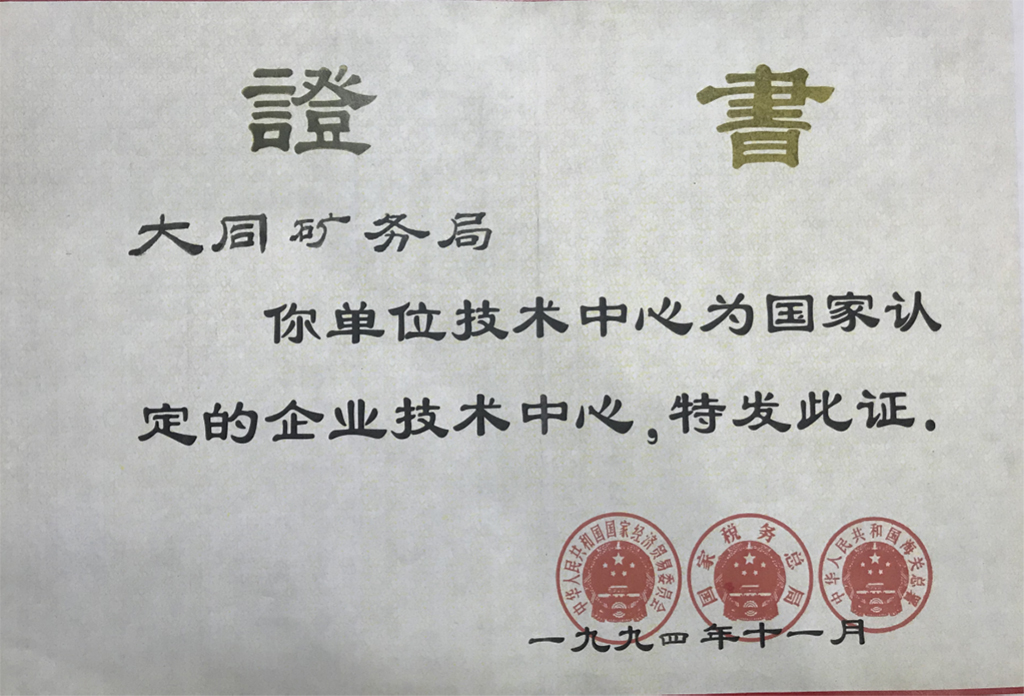 證書
大同矿务局
你单位技术中心为国家认
定的企业技术中心,特发此证.
中华人民共和国国家经济贸易委员会
国家税务总局
中华人民共和国海关总署
一九九四年十一月